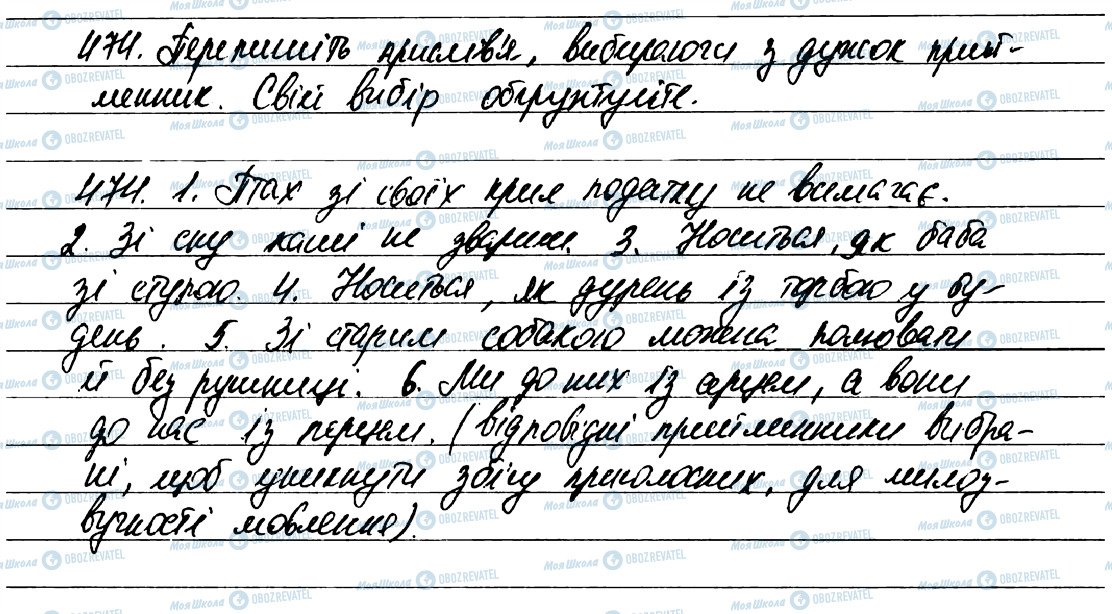 474. Перепишіть прислів'я, вибираючи з дужок прий-
менник. Свій вибір обґрунтуйте.
474. 1. Птах зі своїх крил податку не вимагає.
2. Зі сну каші не звариш. 3. Носиться, як баба
зі ступою. 4. Носиться, як дурень із торбою у бу-
день. 5. Зі старим собакою можна полювати
й без рушниці. 6. Ми до них із серцем, а вони
до нас із перцем. (відповідні прийменники вибра-
ні, щоб уникнути збігу приголосних, для милоз-
вучності мовлення).